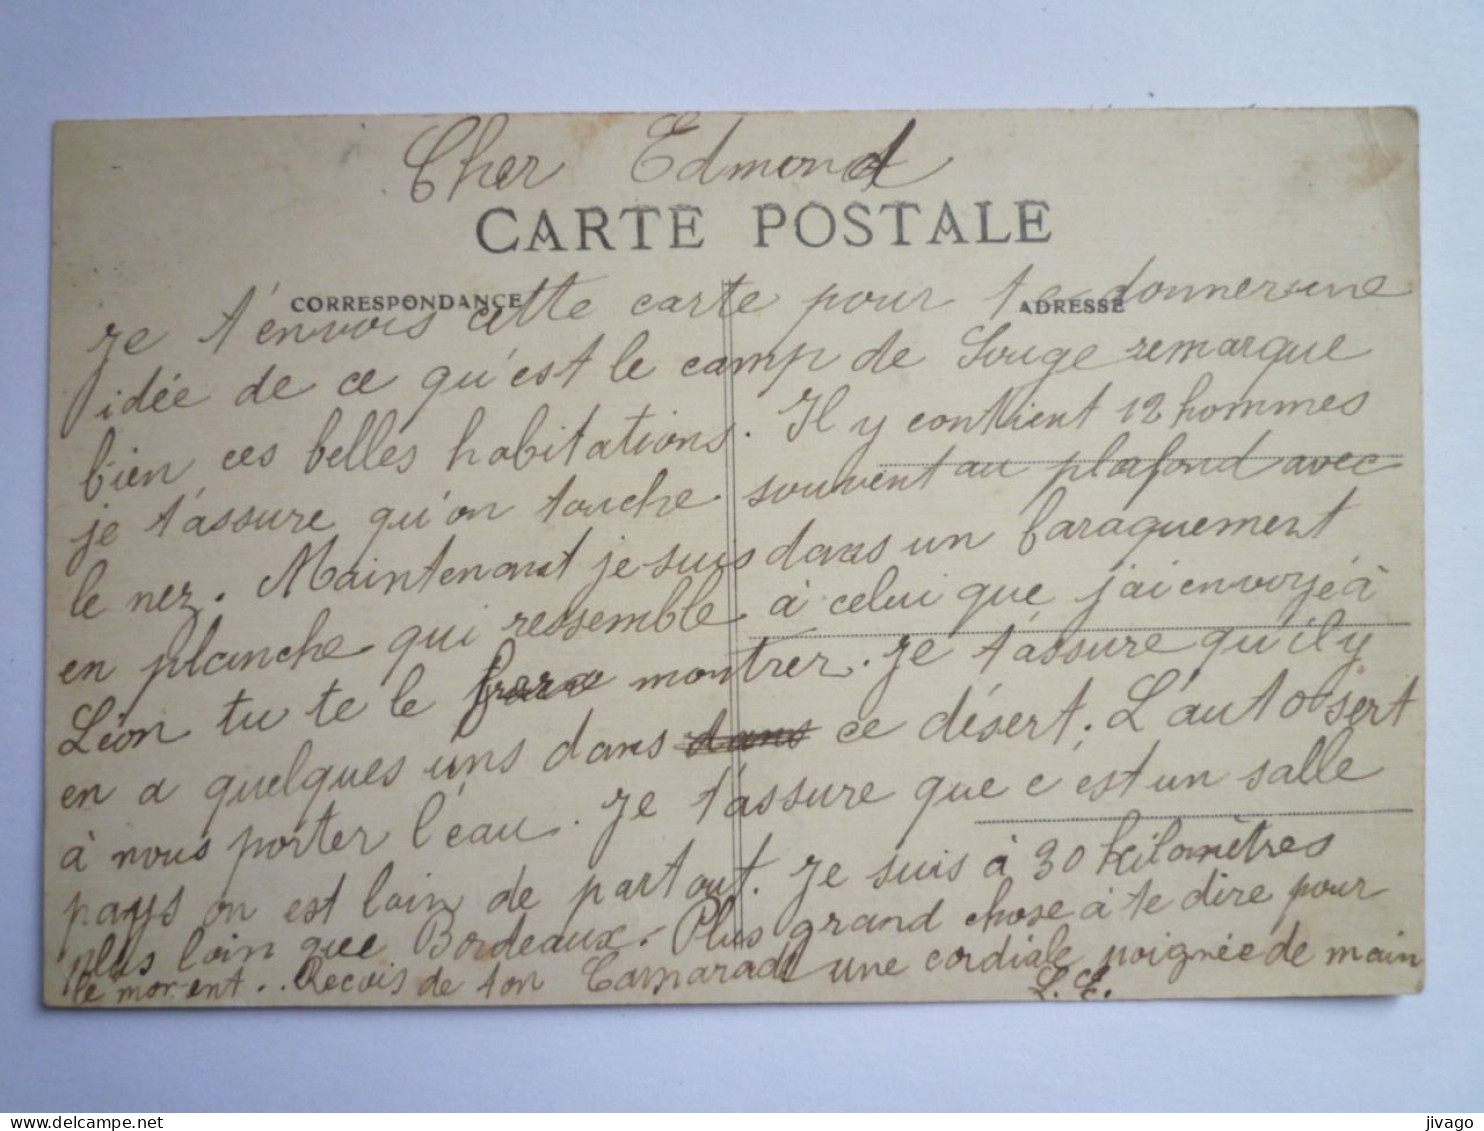 Cher Edmond
CARTE POSTALE
CORRESPONDANCE
ADRESSE
Je t'envois cette carte pour te donner une
idée de ce qu'est le camp de Souge remarque
bien ces belles habitations. Il y contient 12 hommes
je t'assure qu'on touche souvent au plafond avec
le nez. Maintenant je suis dans un baraquement
en planche qui ressemble à celui que j'ai envoyé à
Léon tu te le montrer. Je t'assure qu'il y
en a quelques uns dans dans ce désert. L'auto sert
à nous porter l'eau. Je t'assure que c'est un salle
pays on est loin de partout. Je suis à 30 kilomètres
plus loin que Bordeaux. Plus grand chose à te dire pour
le moment.. Recois de ton Camarade une cordiale poignée de main
jivago